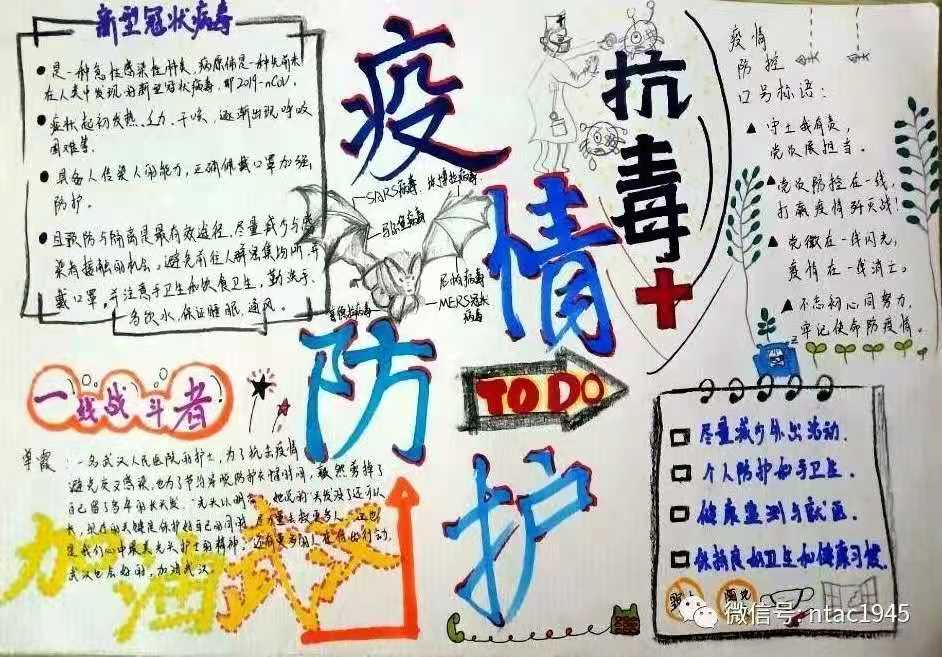 新型冠状病毒
是一种急性感染性肺炎,病原体是一种先前未
在人类中发现的新型冠状病毒,即2019-nCoV.
症状起初发热、乏力、干咳,逐渐出现呼吸
困难等.
具备人传染人的能力,正确佩戴口罩加强
防护.
且预防与隔离是最有效途径,尽量减少与感
染者接触的机会,避免前往人群密集场所,并
戴口罩,并注意手卫生和饮食卫生,勤洗手、
多饮水,保证睡眠,通风.
疫情防护
抗毒
SARS病毒
马尔堡病毒
尼帕病毒
MERS冠状
病毒
疫情
防控
口号标语:
▲守土我有责,
党员展担当。
▲党员防控在一线,
打赢疫情歼灭战!
▲党徽在一线闪光,
疫情在一线消亡。
▲不忘初心同努力,
牢记使命防疫情。
一线战斗者
单霞:一名武汉人民医院的护士,为了抗击疫情
避免交叉感染,也为了节省穿脱防护衣帽时间,毅然剪掉了
自己留了多年的长头发.
武汉也会好的,加油武汉.
加油武汉
TO DO
尽量减少外出活动.
个人防护和手卫生.
健康监测与就医.
保持良好卫生和健康习惯.
微信号: ntac1945